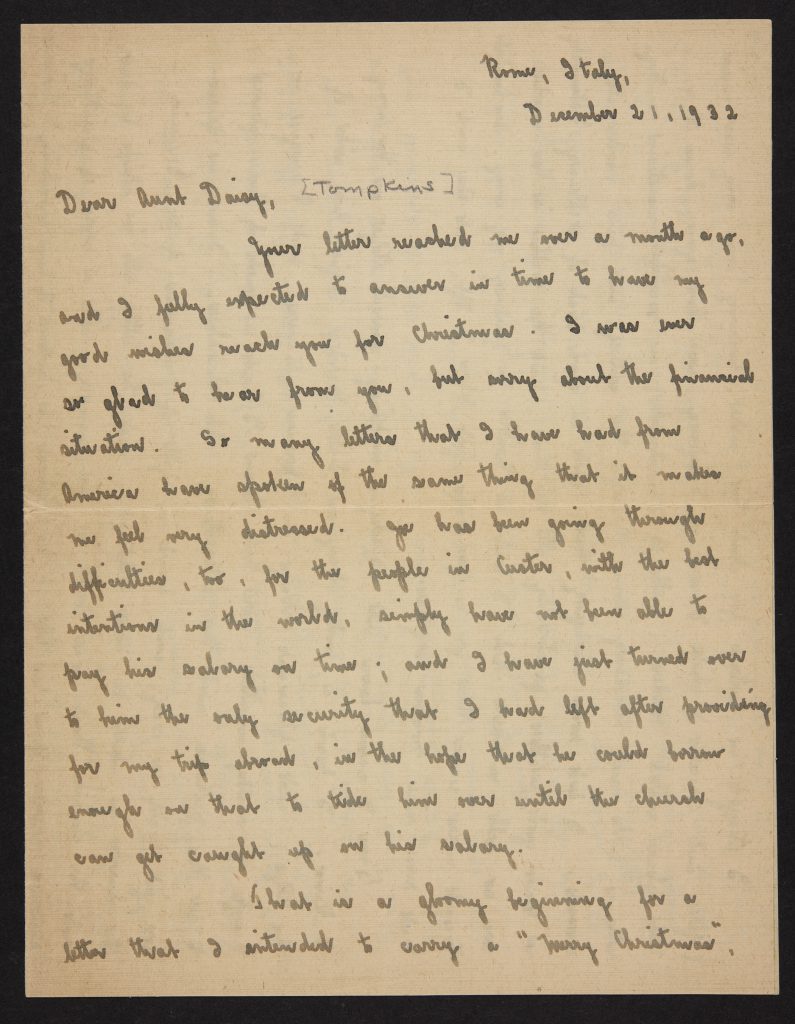 Rome, Italy,
December 21, 1932
Dear Aunt Daisy, [Tompkins]
Your letter reached me over a month ago,
and I fully expected to answer in time to have my
good wishes reach you for Christmas. I was ever
so glad to hear from you, but sorry about the financial
situation. So many letters that I have had from
America have spoken of the same thing that it makes
me feel very distressed. Joe has been going through
difficulties, too, for the people in Custer, with the best
intentions in the world, simply have not been able to
pay his salary on time; and I have just turned over
to him the only security that I had left after providing
for my trip abroad, in the hope that he could borrow
enough on that to tide him over until the church
can get caught up on his salary.
That is a gloomy beginning for a
letter that I intended to carry a "Merry Christmas",